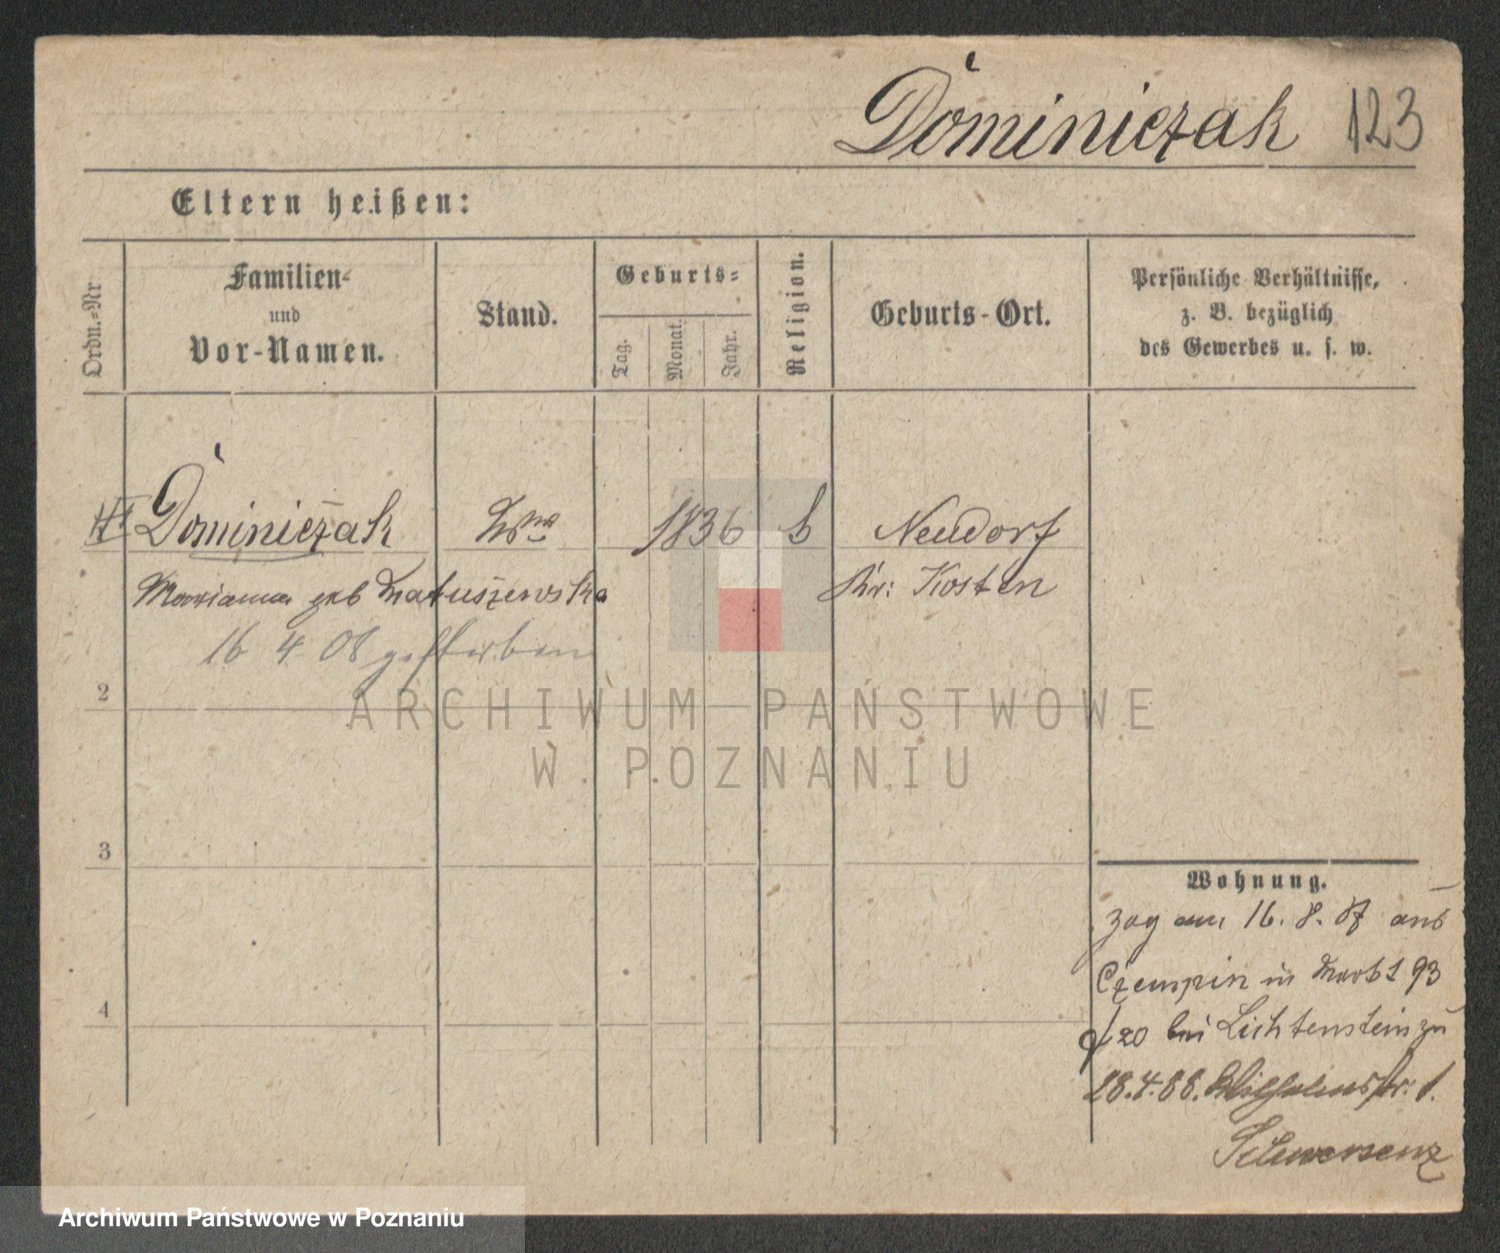 Dominiczak 123
Eltern heißen:
Ordn.-Nr
Familien-
und
Vor-Namen.
Stand.
Geburts-
Tag.
Monat.
Jahr.
Religion.
Geburts-Ort.
Persönliche Verhältnisse,
z. B. bezüglich
des Gewerbes u. s. w.
Dominiczak Wwe 1836 k Neudorf
Marianna geb Matuszewska Kr: Kosten
16 4 08 gestorben
2
3
4
Wohnung.
zog am 16. 8. 87 aus
Czempin in Markt 93
20 bei Lichtenstein zu
28.4.88. Wilhelmstr: 1.
Schwersenz
ARCHIWUM PAŃSTWOWE
W POZNANIU
Archiwum Państwowe w Poznaniu